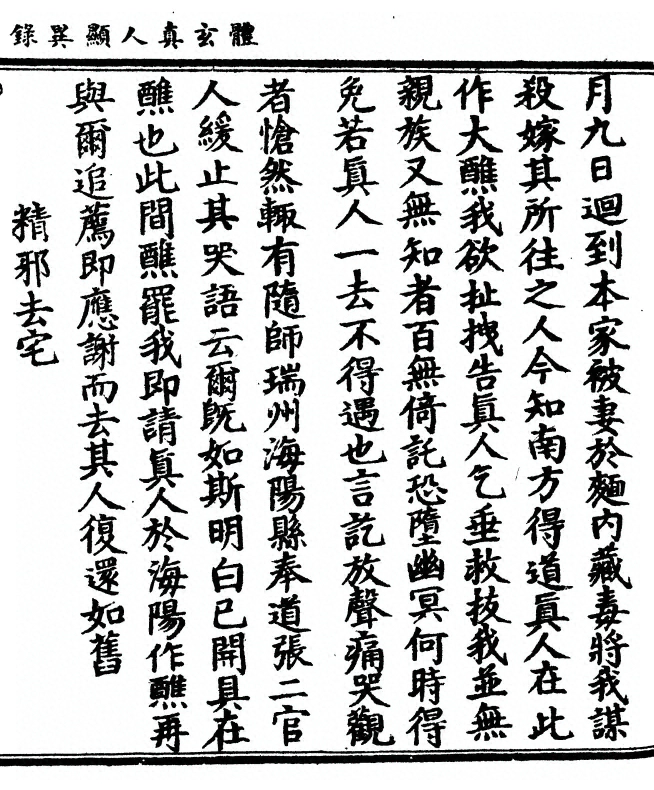 體玄真人顯異錄
月九日迴到本家被妻於麵內藏毒將我謀
殺嫁其所往之人今知南方得道眞人在此
作大醮我欲扯拽告眞人乞垂救抜我並無
親族又無知者百無倚託恐墮幽冥何時得
免若眞人一去不得遇也言訖放聲痛哭觀
者愴然輙有隨師瑞州海陽縣奉道張二官
人緩止其哭語云爾旣如斯明白已開具在
醮也此間醮罷我即請眞人於海陽作醮再
與爾追薦即應謝而去其人復還如舊
精邪去宅